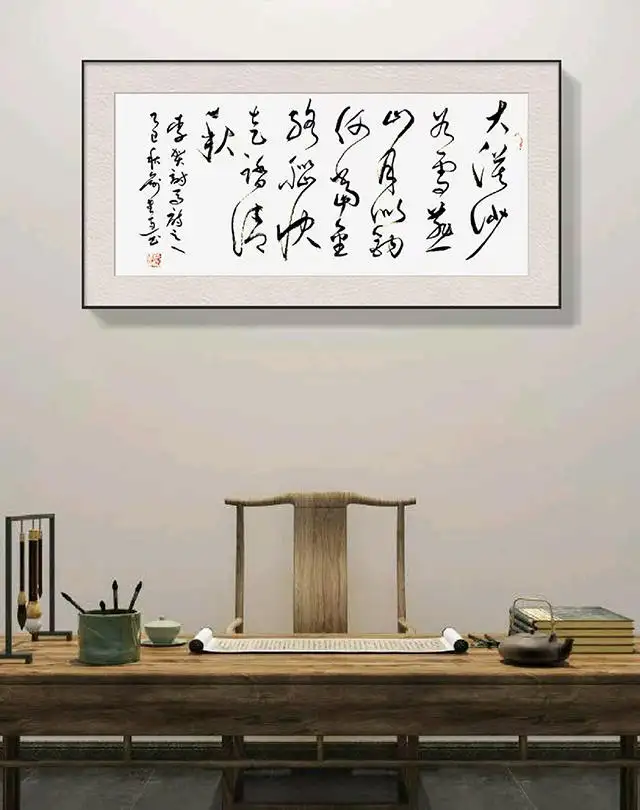 大漠沙
如雪燕
山月似钩
何当金
络脑快
走踏清
秋
李贺诗马诗之一
乙巳秋